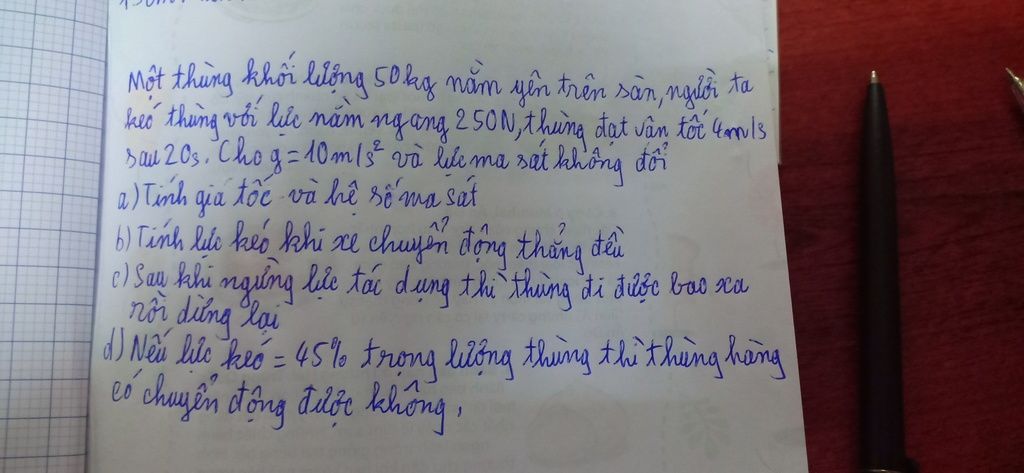 Một thùng khối lượng 50kg nằm yên trên sàn, người ta
kéo thùng với lực nằm ngang 250N, thùng đạt vân tốc 4m/s
sau 20s. Cho g = 10m/s² và lực ma sát không đổi
a) Tính giá tốc và hệ số ma sát
b) Tính lực kéo khi xe chuyển động thẳng đều
c) Sau khi ngừng lực tác dụng thì thùng đi được bao xa
rồi dừng lại
d) Nếu lực kéo = 45% trọng lượng thùng thì thùng hàng
có chuyển động được không,